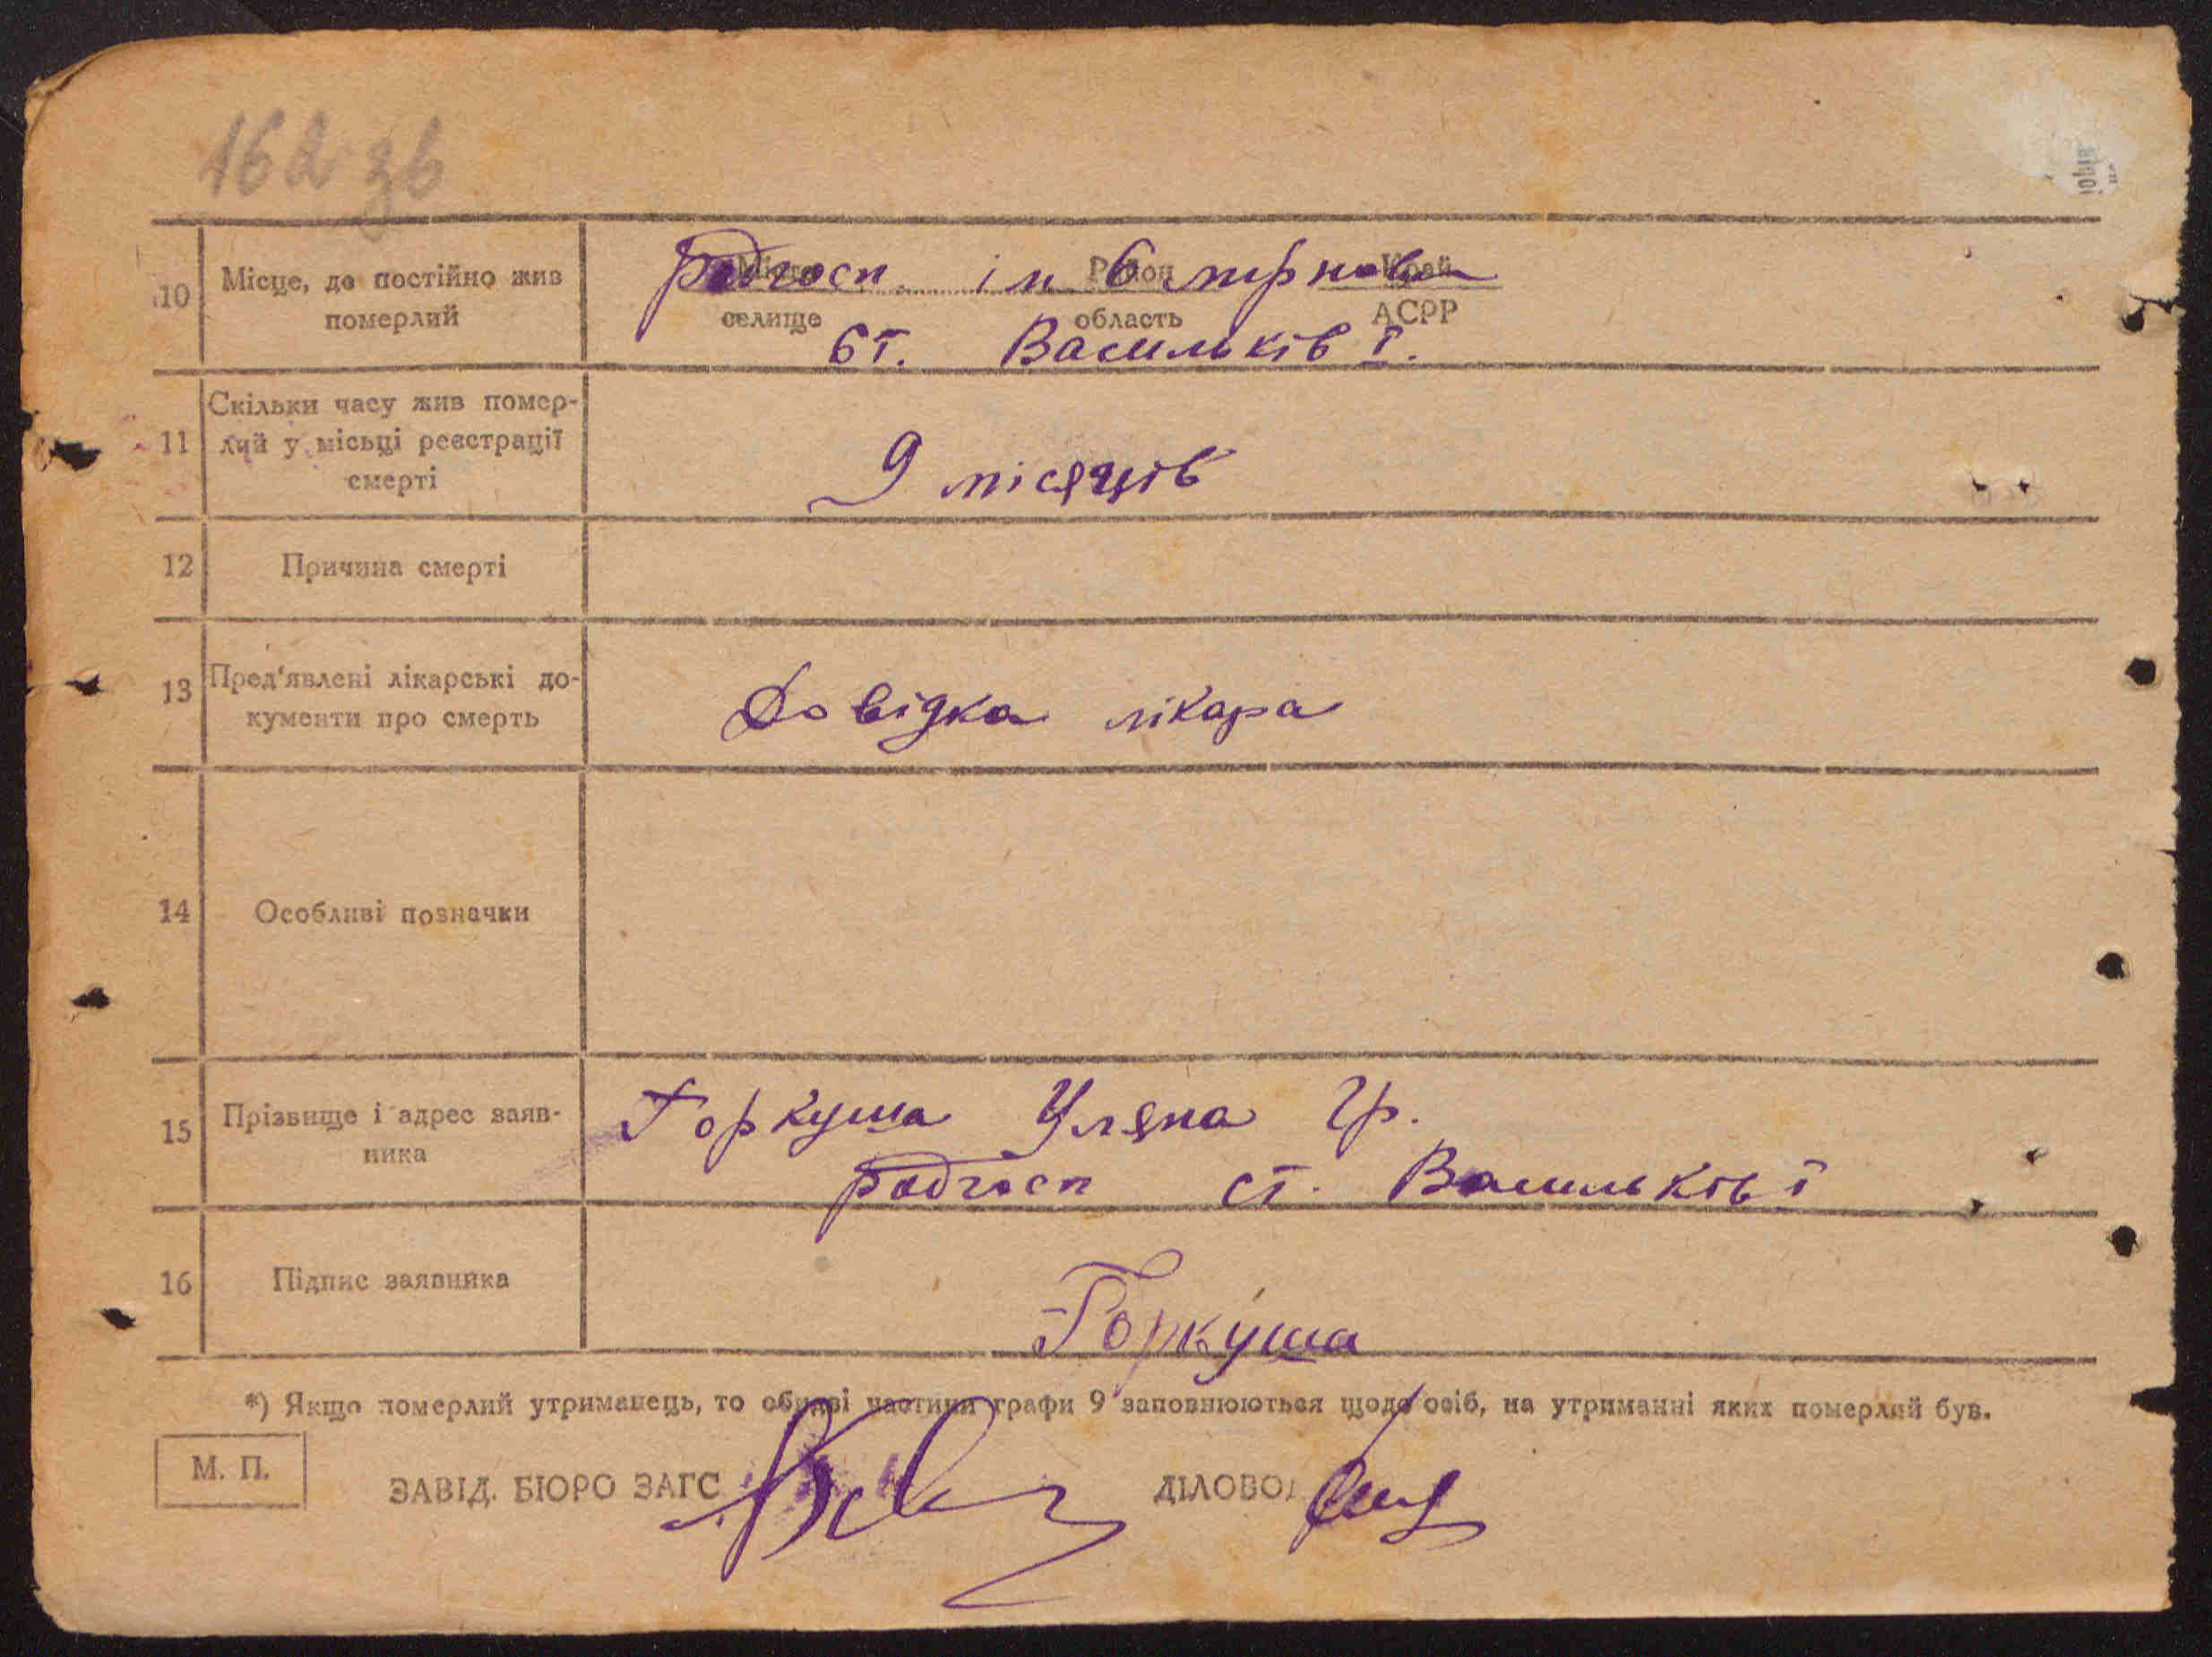 162 зв
10 Місце, де постійно жив
померлий
радгосп. ім
Місто Район Край
селище область АСРР
ст. Васильків І.
11 Скільки часу жив помер-
лий у місьці реєстрації
смерті
9 місяців
12 Причина смерті
13 Пред'явлені лікарські до-
кументи про смерть
Довідка лікара
14 Особливі позначки
15 Прізвище і адрес заяв-
ника
Горкуша Уляна Гр.
радгосп ст. Васильків І
16 Підпис заявника
Горкуша
*) Якщо померлий утриманець, то обидві частини графи 9 заповнюються щодо осіб, на утриманні яких померлий був.
М. П.
ЗАВІД. БЮРО ЗАГС ДІЛОВОД